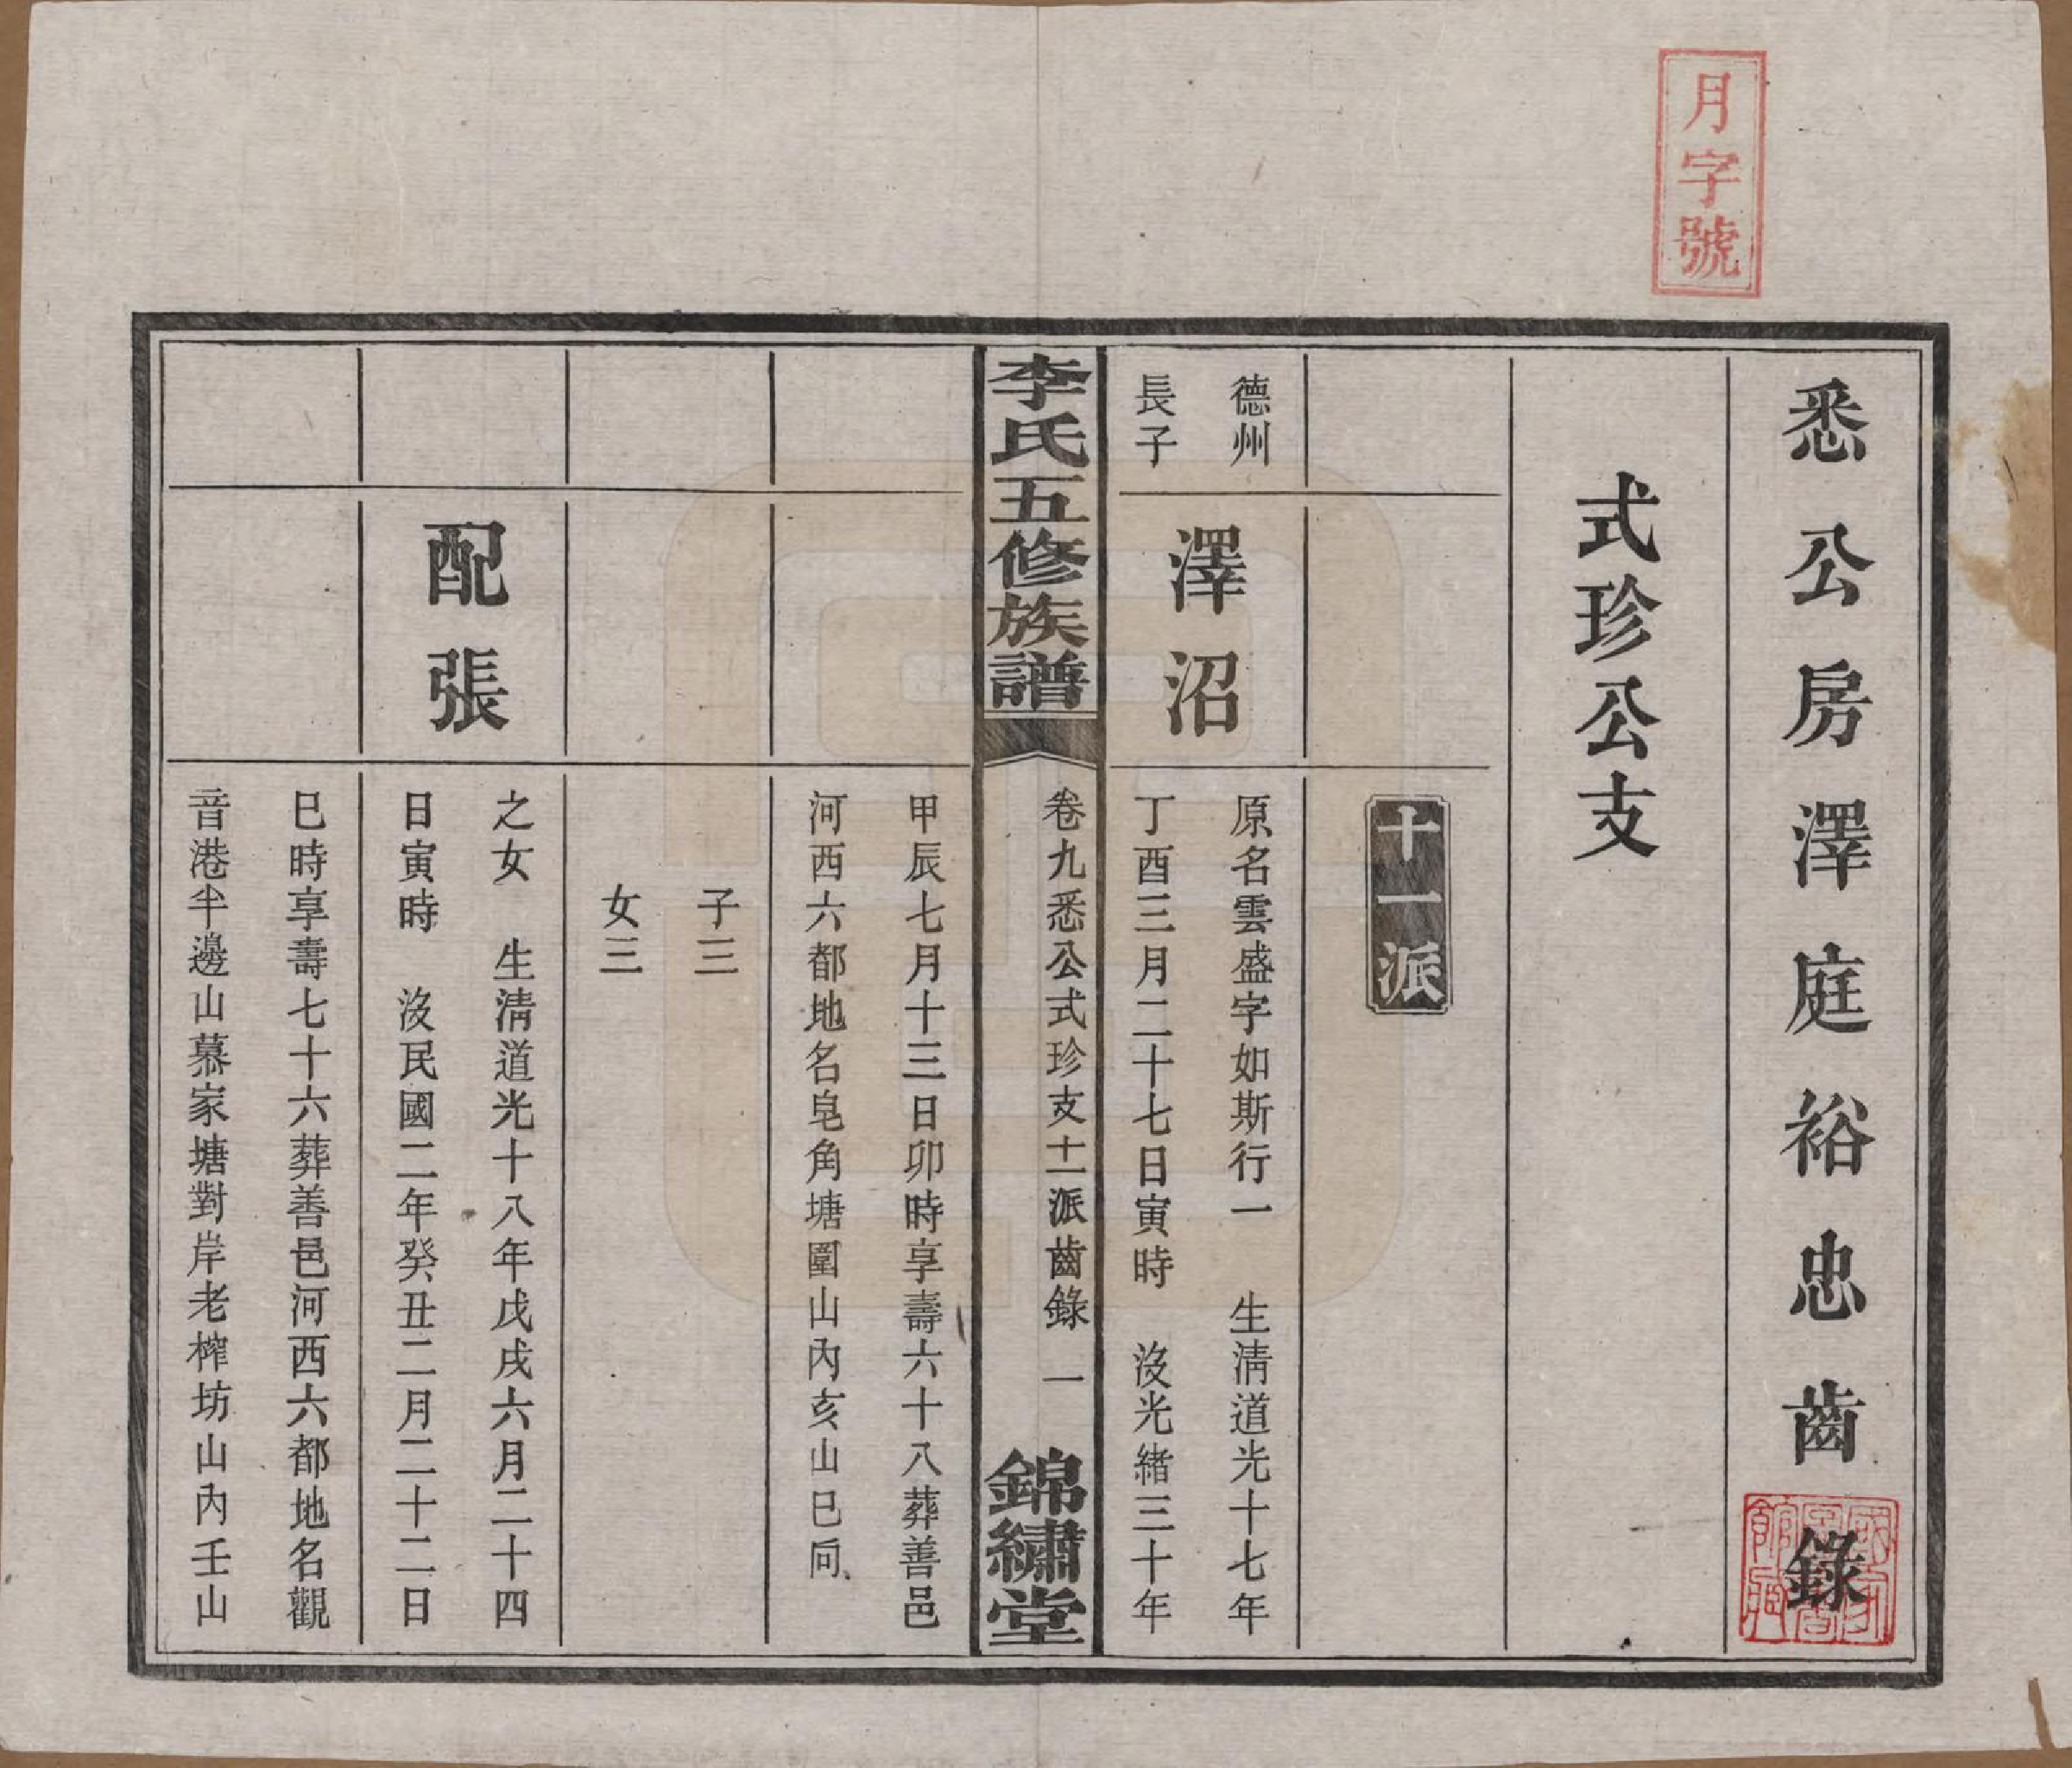 月字號
悉公房澤庭裕忠齒錄
式珍公支
十一派
德州
長子
澤沼
原名雲盛字如斯行一 生清道光十七年
丁酉三月二十七日寅時 沒光緒三十年
李氏五修族譜
卷九悉公式珍支十一派齒錄 一
錦繡堂
甲辰七月十三日卯時享壽六十八葬善邑
河西六都地名皂角塘圍山內亥山巳向
子三
女三
配張
之女 生清道光十八年戊戌六月二十四
日寅時 沒民國二年癸丑二月二十二日
巳時享壽七十六葬善邑河西六都地名觀
音港半邊山慕家塘對岸老榨坊山內壬山